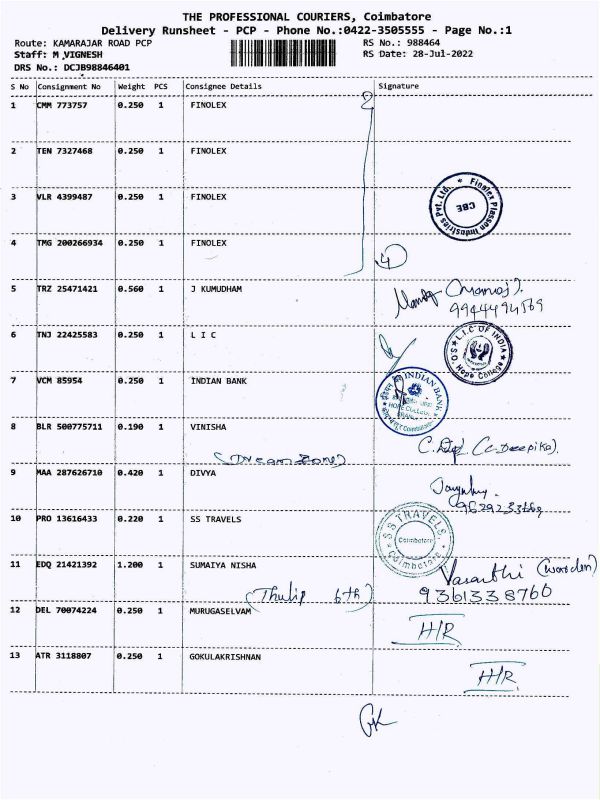 THE PROFESSIONAL COURIERS, Coimbatore
Delivery Runsheet - PCP - Phone No.:0422-3505555 - Page No.:1
Route: KAMARAJAR ROAD PCP RS No.: 988464
Staff: M VIGNESH RS Date: 28-Jul-2022
DRS No.: DCJB98846401
S No Consignment No Weight PCS Consignee Details Signature
1 CMM 773757 0.250 1 FINOLEX
2 TEN 7327468 0.250 1 FINOLEX
3 VLR 4399487 0.250 1 FINOLEX
Finolex Plasson Industries Pvt. Ltd. * CBE
4 TMG 200266934 0.250 1 FINOLEX
4
5 TRZ 25471421 0.560 1 J KUMUDHAM
(Manoj).
9944494569
6 TNJ 22425583 0.250 1 L I C
L.I.C OF INDIA ★ S.O. Hope College ★
7 VCM 85954 0.250 1 INDIAN BANK
INDIAN BANK
Coimbatore
8 BLR 500775711 0.190 1 VINISHA
(C. Deepika).
(Dream Zone)
9 MAA 287626710 0.420 1 DIVYA
10 PRO 13616433 0.220 1 SS TRAVELS
S S TRAVELS Coimbatore Coimbatore
11 EDQ 21421392 1.200 1 SUMAIYA NISHA
Vasanthi (warden)
(Thulip 6th) 9361338760
12 DEL 70074224 0.250 1 MURUGASELVAM
H/R
13 ATR 3118807 0.250 1 GOKULAKRISHNAN
H/R